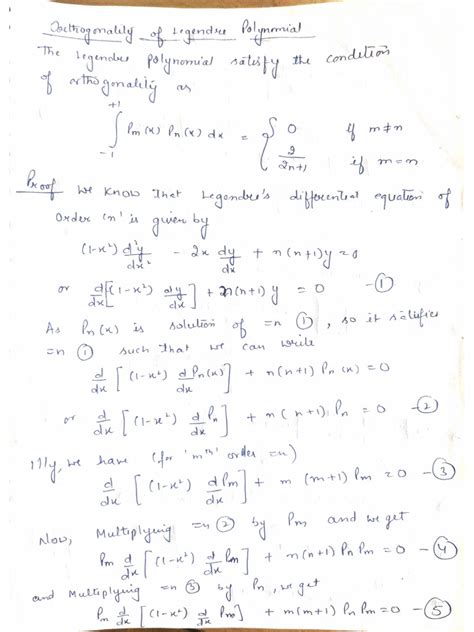 Orthogonality of Legendre Polynomial
The Legendre polynomial satisfy the condition
of orthogonality as
∫_{-1}^{+1} Pm(x) Pn(x) dx = { 0 if m≠n
2/(2n+1) if m=n
Proof We know that Legendre's differential equation of
order 'n' is given by
(1-x²) d²y/dx² - 2x dy/dx + n(n+1)y=0
or d/dx[(1-x²) dy/dx] + n(n+1)y = 0 -①
As Pn(x) is solution of =n ①, so it satisfies
=n ① such that we can write
d/dx [(1-x²) d/dx Pn(x)] + n(n+1) Pn(x) =0
or d/dx [(1-x²) d/dx Pn] + n(n+1) Pn = 0 -②
Illy, we have (for 'mth' order =n)
d/dx [(1-x²) d/dx Pm] + m(m+1) Pm = 0 -③
Now, Multiplying =n ② by Pm and we get
Pm d/dx [(1-x²) d/dx Pm] + n(n+1) Pn Pm = 0 -④
and Multiplying =n ③ by Pn, we get
Pm d/dx [(1-x²) d/dx Pm] + m(m+1) Pn Pm = 0 -⑤